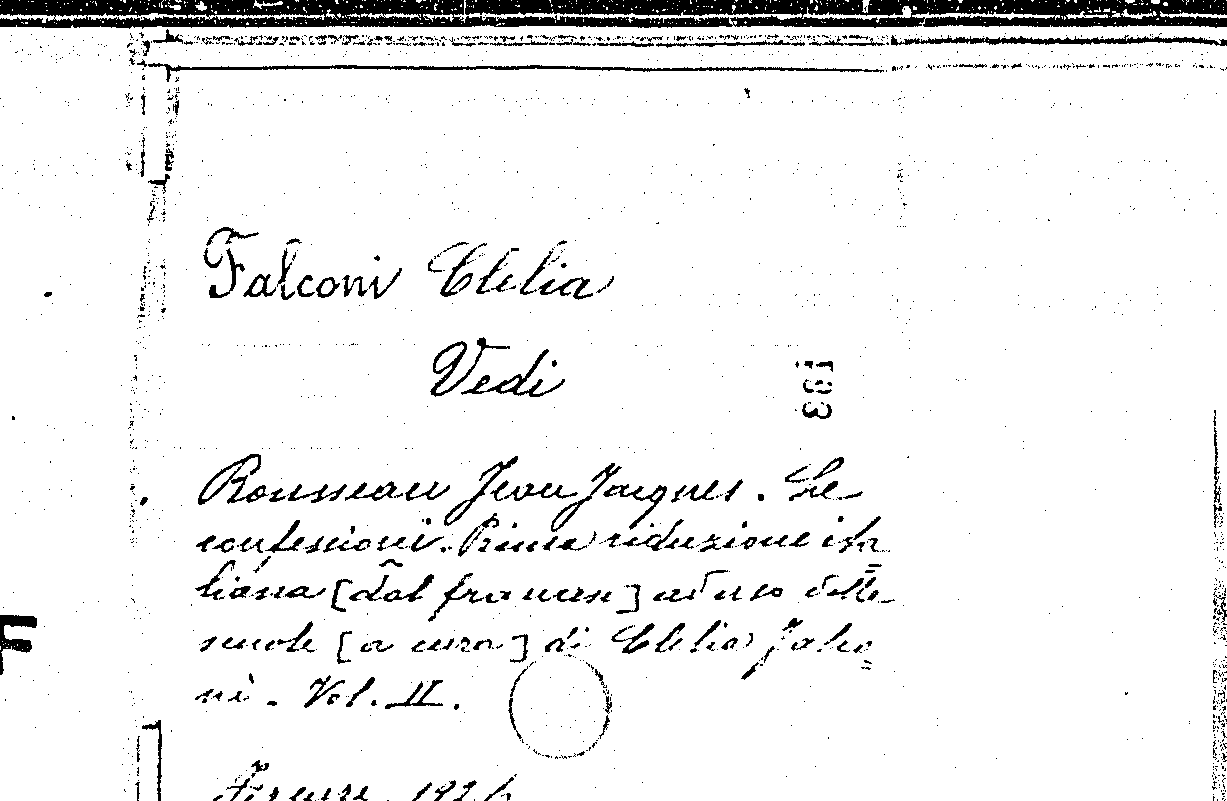 Falconi Clelia
Vedi
133
Rousseau Jean Jacques. Le
confessioni. Prima riduzione ita=
liana [dal francese] ad uso delle
scuole [a cura] di Clelia Falco=
ni. Vol. II.
F
Firenze, 192